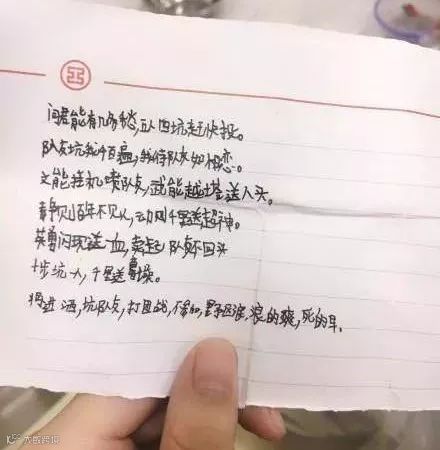 问君能有几多愁,五人四坑赶快投。
队友坑我千百遍,我待队友如初恋。
文能挂机喷队友,武能越塔送人头。
静则百年不见人,动则千里送超神。
英勇闪现送一血,卖起队友不回头
十步坑一人,千里送贞操。
将进酒,坑队友,打团战,不参加,野区浪,浪的爽,死的早。
大数跨境